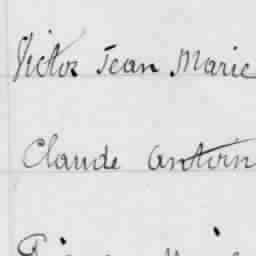 Victor Jean Marie
Claude Antoin